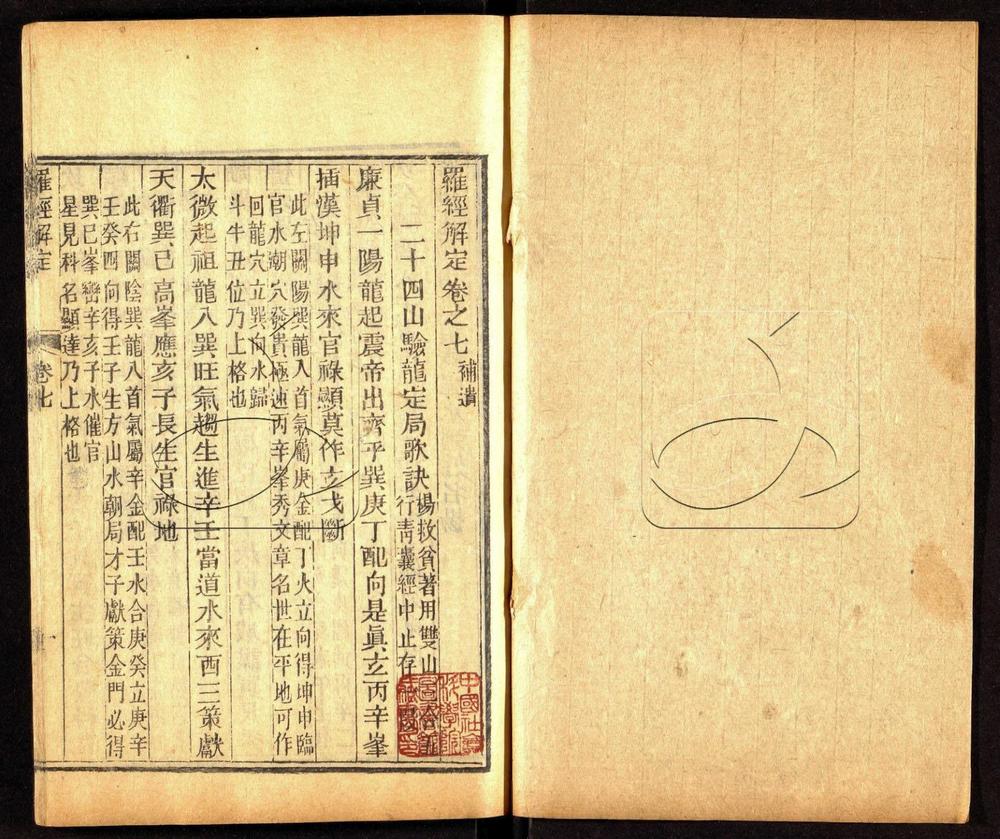 羅經解定卷之七補遺
二十四山驗龍定局歌訣
楊救貧著用雙山
行靑囊經中止存
廉貞一陽龍起震帝出齊乎巽庚丁配向是眞玄丙辛峯
揷漢坤申水來官祿顯莫作玄戈斷
此左關陽巽龍入首氣屬庚金配丁火立向得坤申臨
官水潮穴發貴極速丙辛峯秀文章名世在平地可作
回龍穴立巽向水歸
斗牛丑位乃上格也
太微起祖龍八巽旺氣趨生進辛壬當道水來酉三策獻
天衢巽巳高峯應亥子長生官祿地
此右關陰巽龍八首氣屬辛金配壬水合庚癸立庚辛
壬癸四向得壬子生方山水朝局才子獻策金門必得
巽巳峯巒辛亥子水催官
星見科名顯達乃上格也
羅經解定
卷七